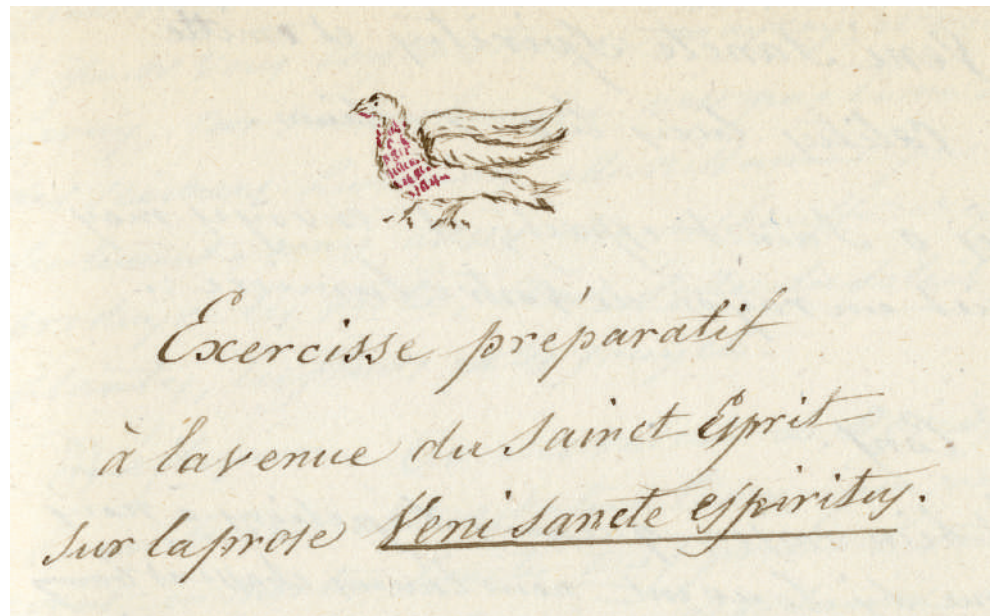 Excercisse préparatif
à lavenue du Sainct Esprit
sur laprose Veni Sancte espiritus.